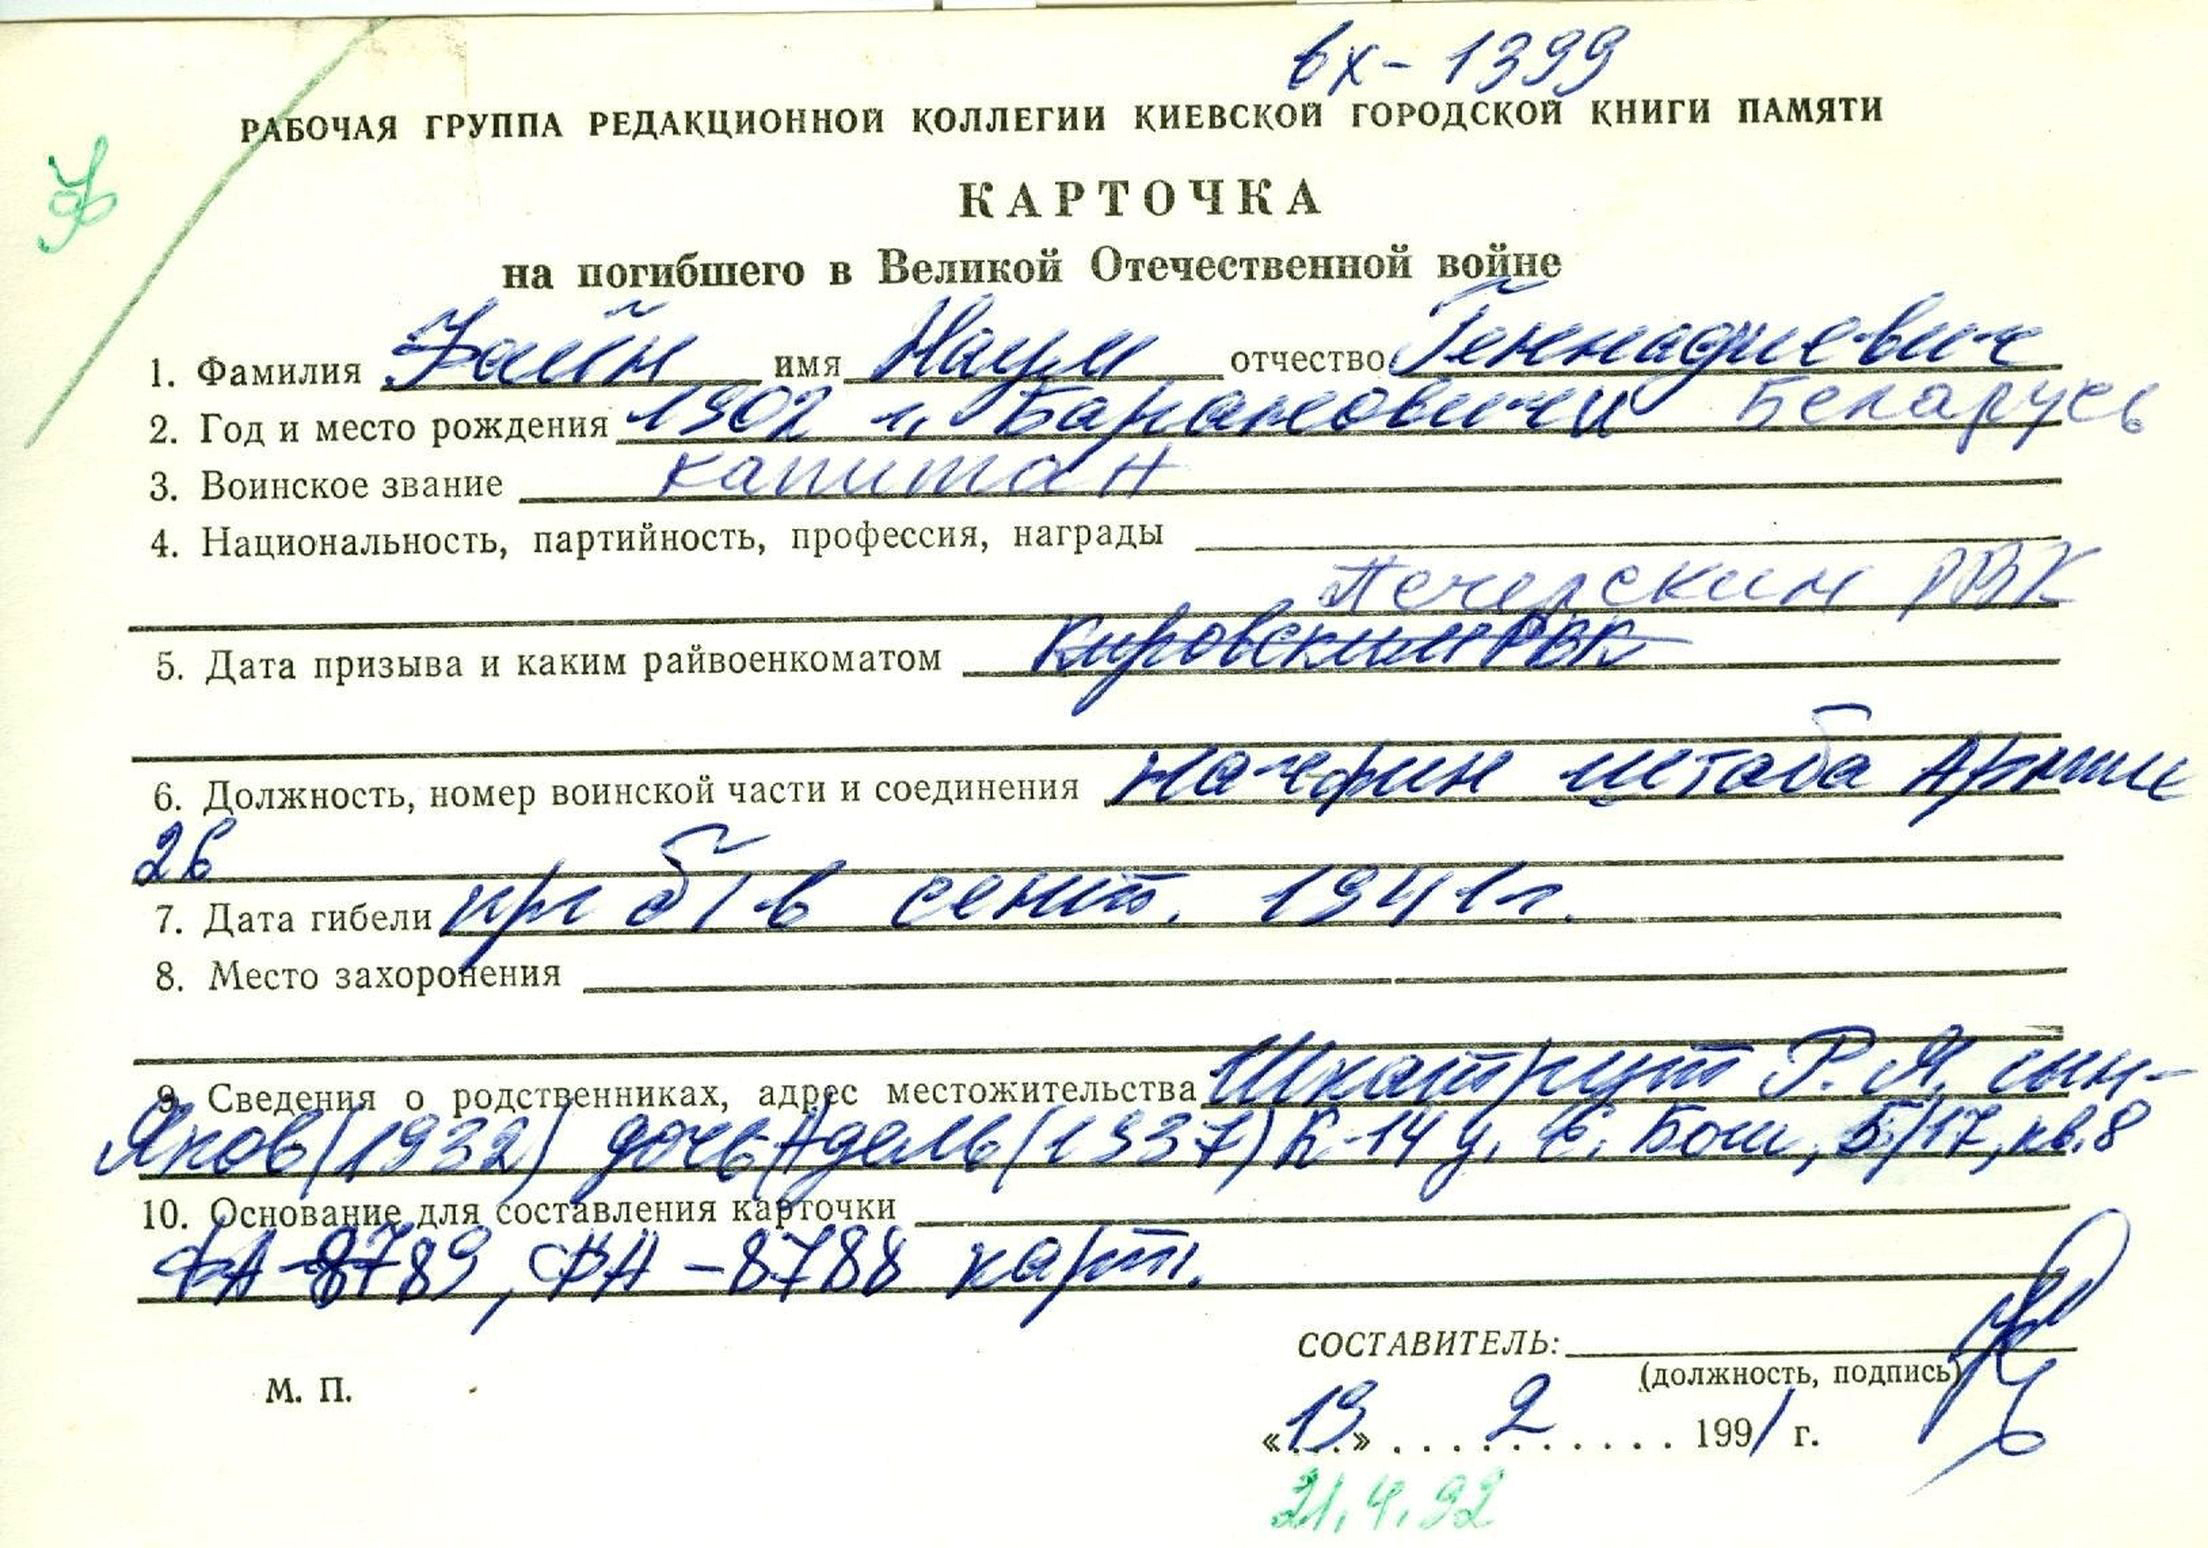 вх - 1399
РАБОЧАЯ ГРУППА РЕДАКЦИОННОЙ КОЛЛЕГИИ КИЕВСКОЙ ГОРОДСКОЙ КНИГИ ПАМЯТИ
КАРТОЧКА
на погибшего в Великой Отечественной войне
1. Фамилия Файн имя Наум отчество Геннадиевич
2. Год и место рождения 1902 г, Барановичи Беларусь
3. Воинское звание капитан
4. Национальность, партийность, профессия, награды
Печерским РВК
5. Дата призыва и каким райвоенкоматом Кировским РВК
6. Должность, номер воинской части и соединения начфин штаба Армии
26
7. Дата гибели пр б/в сент. 1941 г.
8. Место захоронения
9. Сведения о родственниках, адрес местожительства Шкатрут Р. Я. сын-
Яков (1932) дочь Адель (1937) К-14 у. Е. Бош, 5/17, кв. 8
10. Основание для составления карточки
ФА-8789, ФА-8788 карт.
СОСТАВИТЕЛЬ:
(должность, подпись)
М. П.
«19» 2 1991 г.
21.4.92